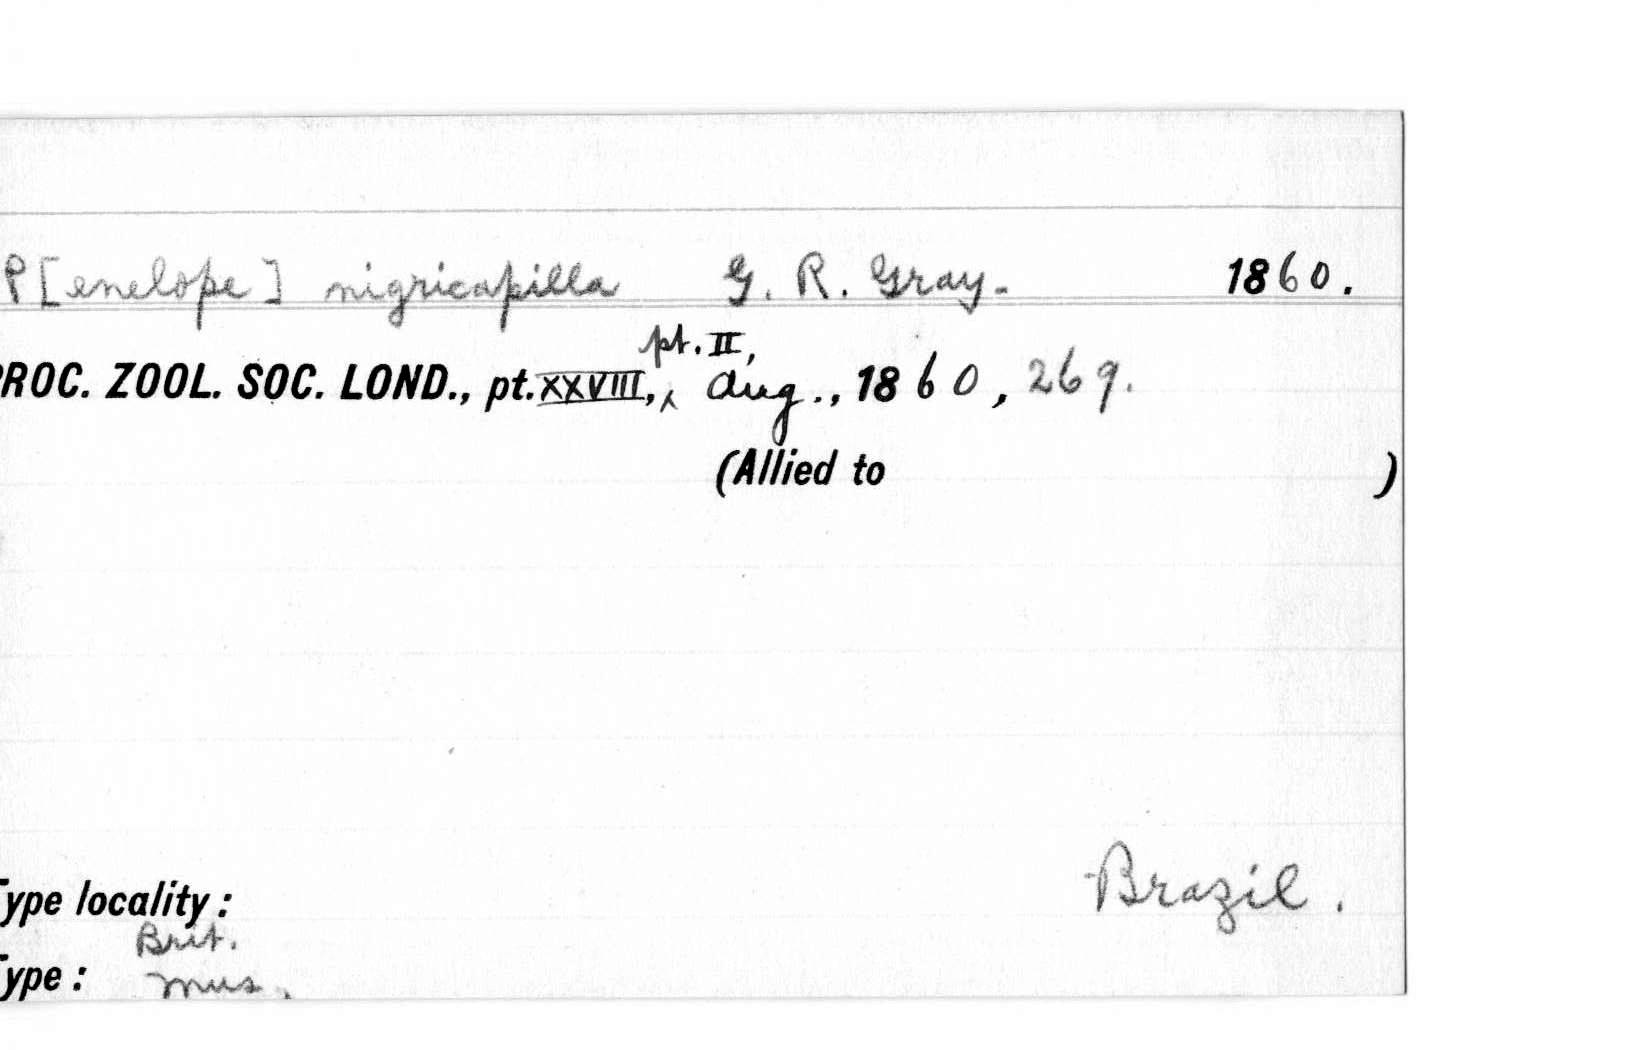 P[enelope] nigricapilla G. R. Gray. 1860.
pt. II,
PROC. ZOOL. SOC. LOND., pt. XXVIII, ^ Aug., 1860, 269.
(Allied to )
Brazil.
Type locality:
Brit.
Type: Mus.